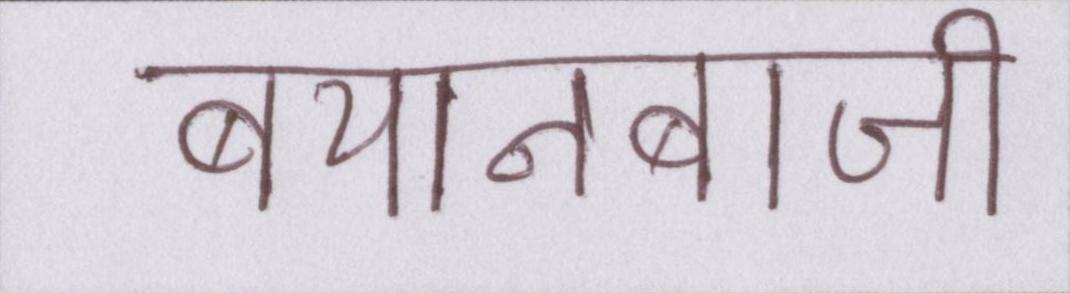 बयानबाजी